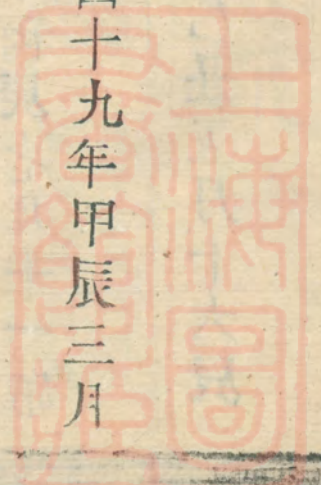 十九年甲辰三月
上海圖書館藏